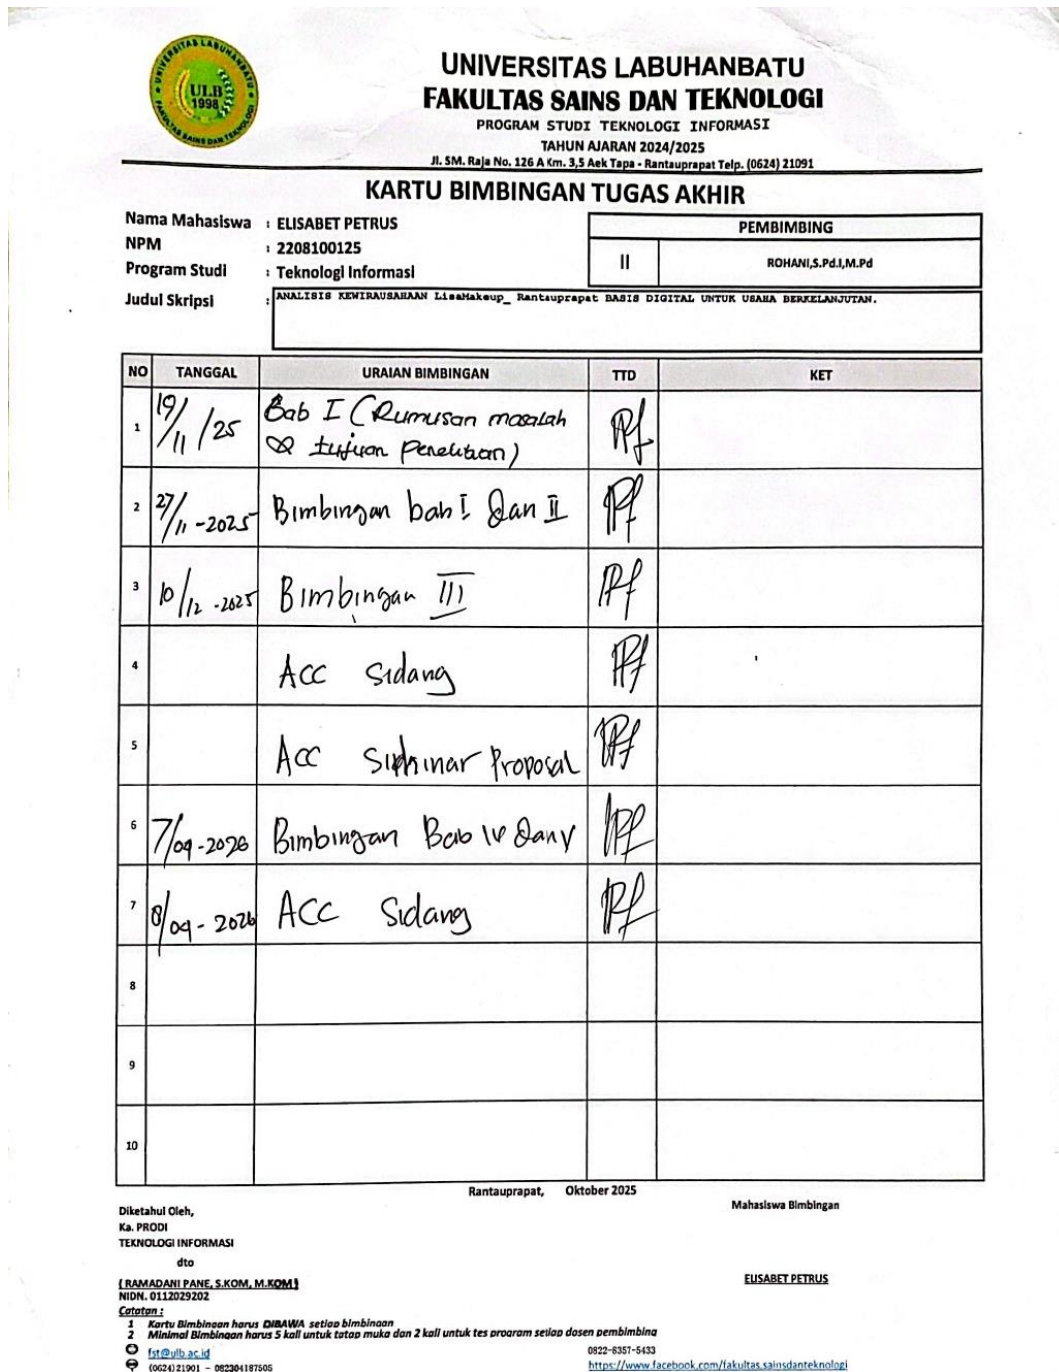 UNIVERSITAS LABUHANBATU
FAKULTAS SAINS DAN TEKNOLOGI
ULB
1998
UNIVERSITAS LABUHANBATU
FAKULTAS SAINS DAN TEKNOLOGI
PROGRAM STUDI TEKNOLOGI INFORMASI
TAHUN AJARAN 2024/2025
Jl. SM. Raja No. 126 A Km. 3,5 Aek Tapa - Rantauprapat Telp. (0624) 21091
KARTU BIMBINGAN TUGAS AKHIR
Nama Mahasiswa : ELISABET PETRUS
NPM : 2208100125
Program Studi : Teknologi Informasi
PEMBIMBING
II ROHANI,S.Pd.I,M.Pd
Judul Skripsi : ANALISIS KEWIRAUSAHAAN LisaMakeup_ Rantauprapat BASIS DIGITAL UNTUK USAHA BERKELANJUTAN.
NO TANGGAL URAIAN BIMBINGAN TTD KET
1 19/11/25 Bab I (Rumusan masalah
& tujuan Penelitian)
2 27/11-2025 Bimbingan bab I dan II
3 10/12-2025 Bimbingan III
4 ACC Sidang
5 ACC Proposal
6 7/09-2026 Bimbingan Bab IV dan V
7 8/09-2026 ACC Sidang
8
9
10
Rantauprapat, Oktober 2025
Diketahui Oleh,
Ka. PRODI
TEKNOLOGI INFORMASI
dto
( RAMADANI PANE, S.KOM, M.KOM )
NIDN. 0112029202
Mahasiswa Bimbingan
ELISABET PETRUS
Catatan :
1 Kartu Bimbingan harus DIBAWA setiap bimbingan
2 Minimal Bimbingan harus 5 kali untuk tatap muka dan 2 kali untuk tes program setiap dosen pembimbing
fst@ulb.ac.id
(0624) 21901 - 082304187505
0822-6357-5433
https://www.facebook.com/fakultas.sainsdanteknologi